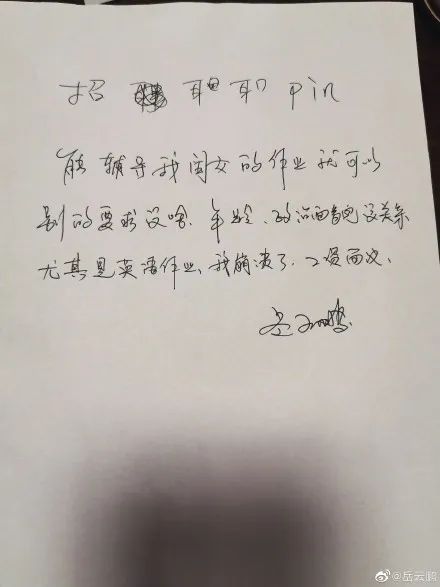 招 耳 职 pin
能辅导我闺女的作业就可以
别的要求没啥. 年龄、政治面貌都没关系
尤其是英语作业、我崩溃了. 工资面议.
岳云鹏
@岳云鹏